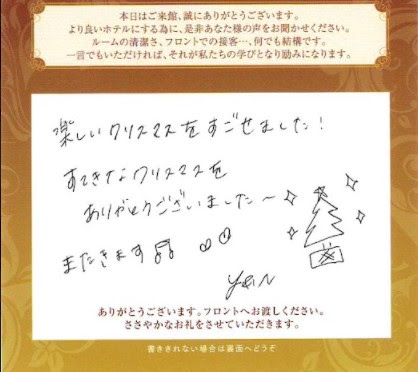 本日はご来館、誠にありがとうございます。
より良いホテルにする為に、是非あなた様の声をお聞かせください。
ルームの清潔さ、フロントでの接客…、何でも結構です。
一言でもいただければ、それが私たちの学びとなり励みになります。
楽しいクリスマスをすごせました!
すてきなクリスマスを
ありがとうございました〜
またきます
ありがとうございます。フロントへお渡しください。
ささやかなお礼をさせていただきます。
書ききれない場合は裏面へどうぞ